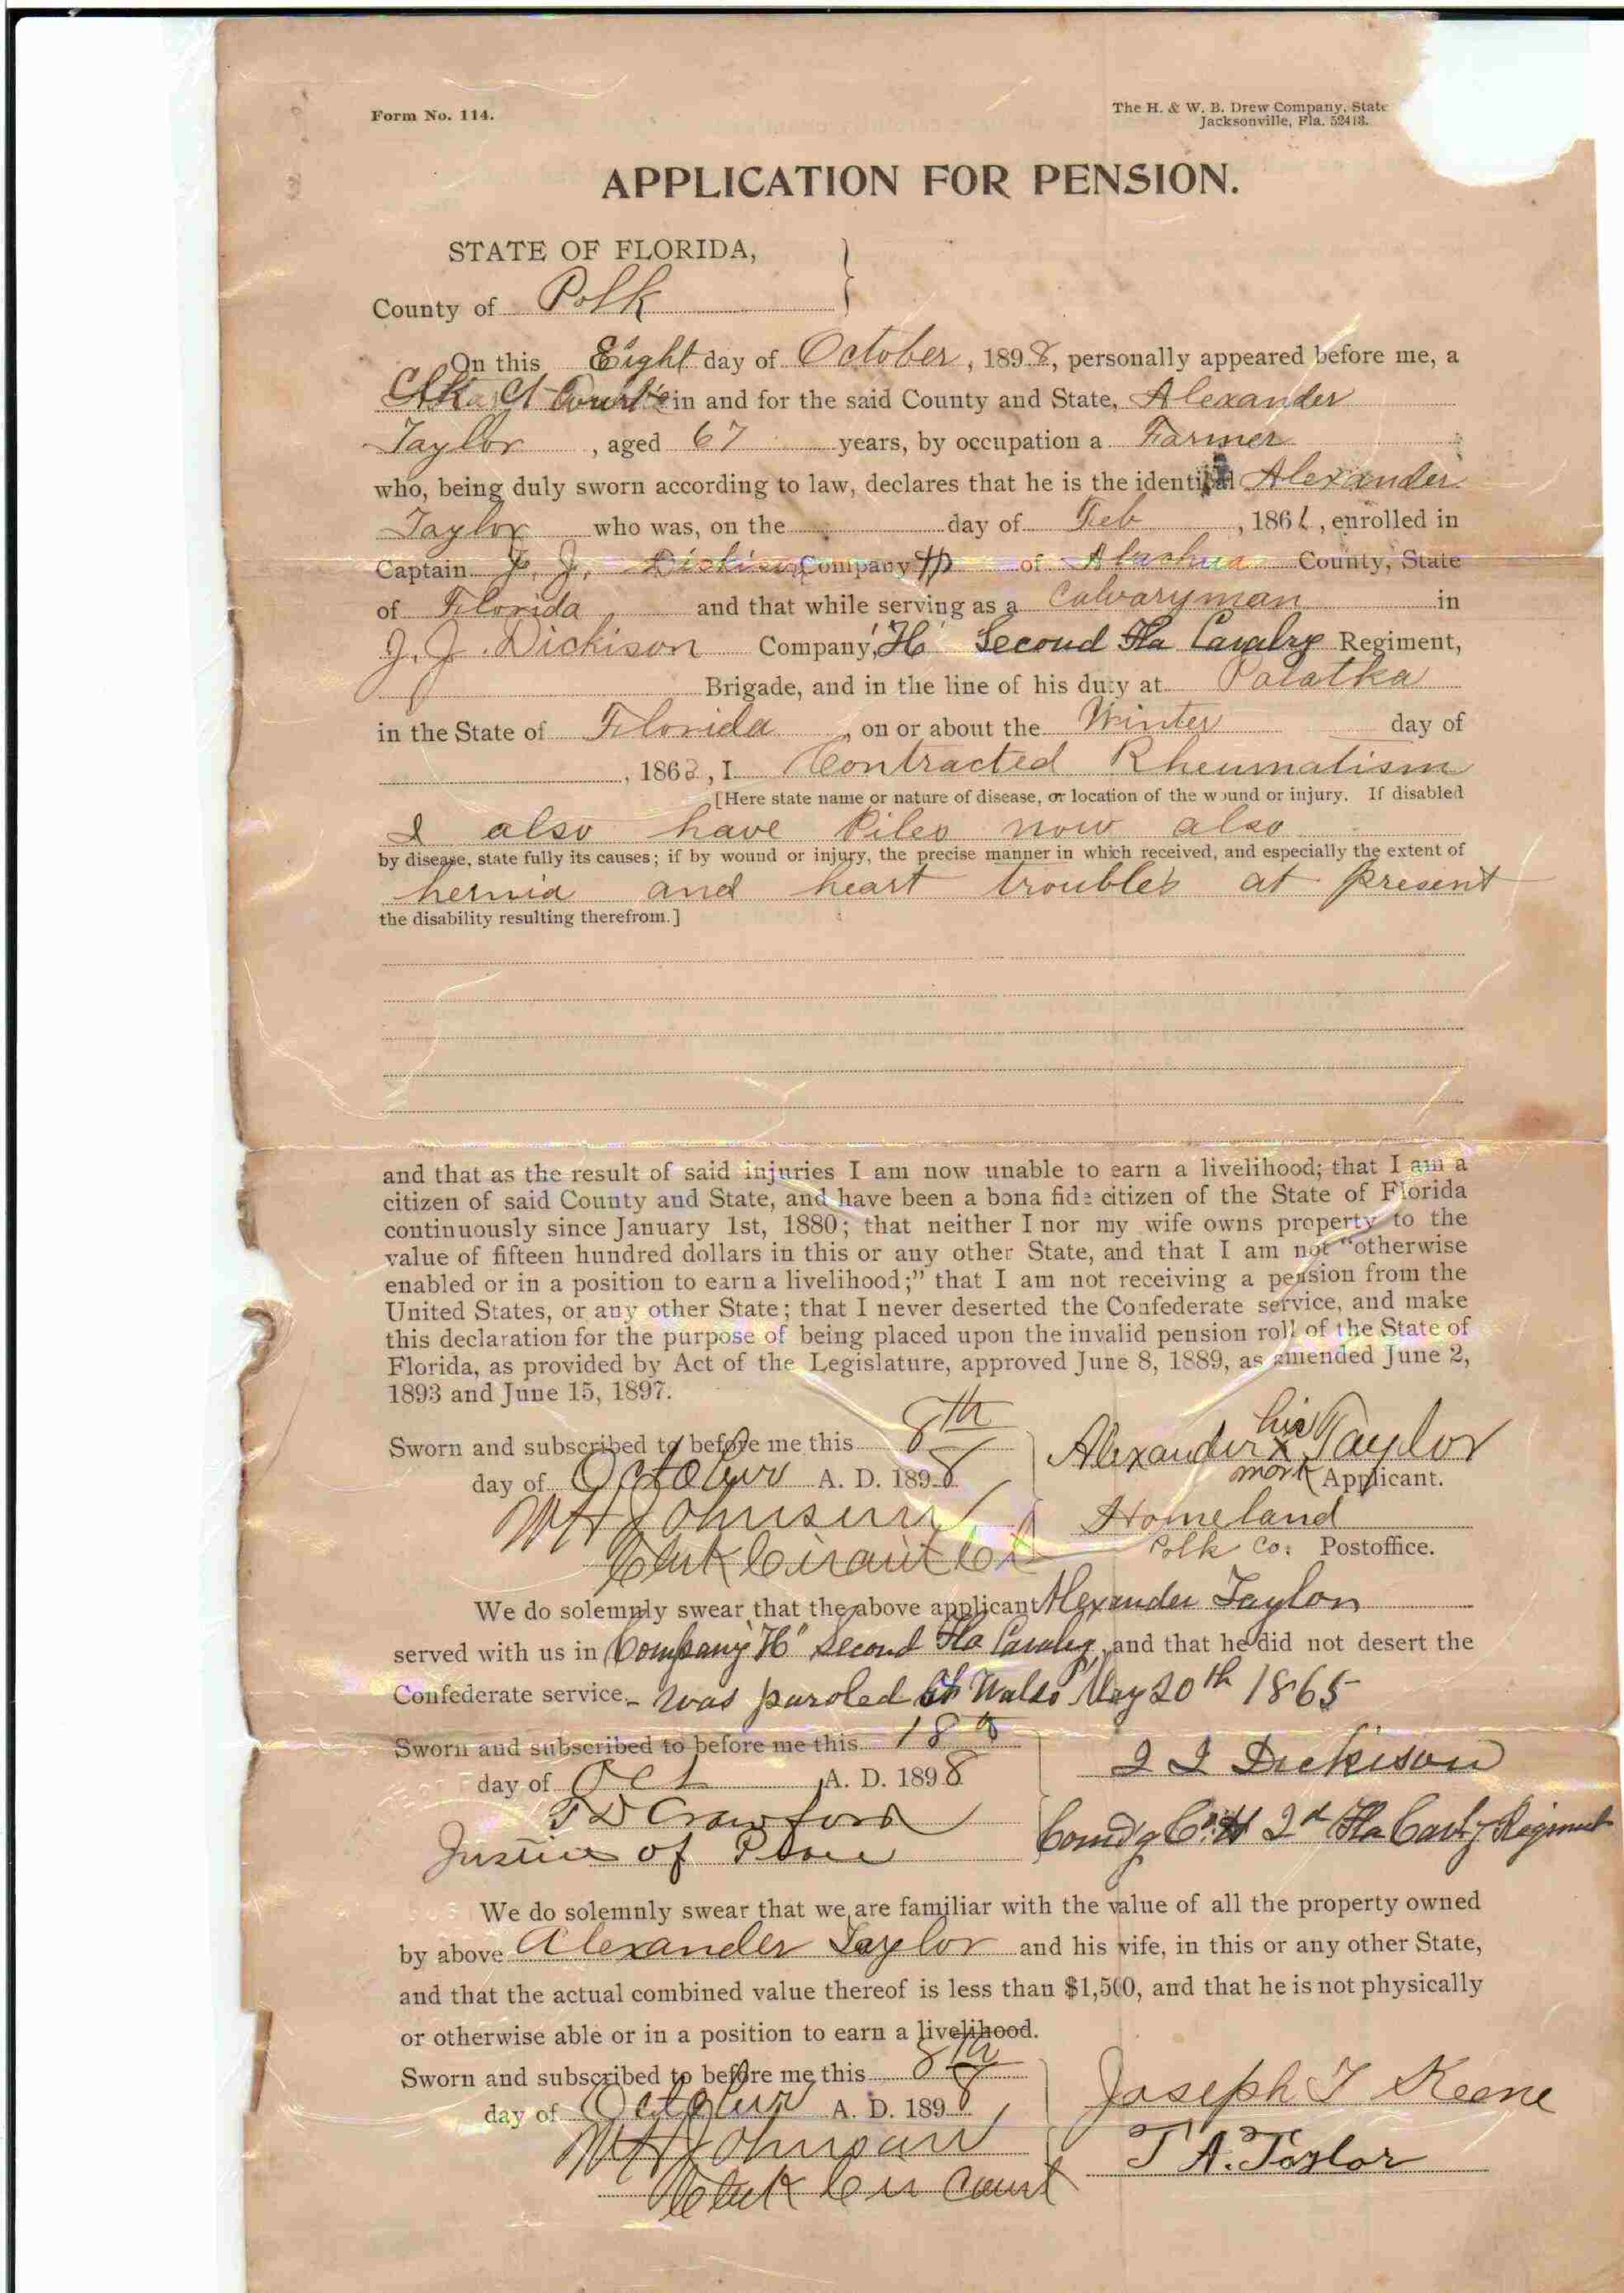 Form No. 114.
The H. & W. B. Drew Company, State
Jacksonville, Fla. 52413.
APPLICATION FOR PENSION.
STATE OF FLORIDA,
County of Polk
On this Eight day of October, 1898, personally appeared before me, a
Court in and for the said County and State, Alexander
Taylor, aged 67 years, by occupation a Farmer
who, being duly sworn according to law, declares that he is the identical Alexander
Taylor who was, on the day of Feb, 186 , enrolled in
Captain J. J. Dickison Company H of Alachua County, State
of Florida and that while serving as a Calvaryman in
J. J. Dickison Company "H" Second Fla Cavalry Regiment,
Brigade, and in the line of his duty at Palatka
in the State of Florida, on or about the Winter day of
, 1863, I Contracted Rheumatism
[Here state name or nature of disease, or location of the wound or injury. If disabled
I also have Piles now also
by disease, state fully its causes; if by wound or injury, the precise manner in which received, and especially the extent of
hernia and heart troubles at present
the disability resulting therefrom.]
and that as the result of said injuries I am now unable to earn a livelihood; that I am a
citizen of said County and State, and have been a bona fide citizen of the State of Florida
continuously since January 1st, 1880; that neither I nor my wife owns property to the
value of fifteen hundred dollars in this or any other State, and that I am not "otherwise
enabled or in a position to earn a livelihood;" that I am not receiving a pension from the
United States, or any other State; that I never deserted the Confederate service, and make
this declaration for the purpose of being placed upon the invalid pension roll of the State of
Florida, as provided by Act of the Legislature, approved June 8, 1889, as amended June 2,
1893 and June 15, 1897.
Sworn and subscribed to before me this 8th
day of October A. D. 1898
Alexander his x mark Taylor
Applicant.
W H Johnson
Clerk Circuit Ct
Homeland
Polk Co. Postoffice.
We do solemnly swear that the above applicant Alexander Taylor
served with us in Company "H" Second Fla Cavalry, and that he did not desert the
Confederate service - was paroled at Waldo May 20th 1865
Sworn and subscribed to before me this 18th
day of Oct A. D. 1898
J J Dickison
T D Crawford
Justice of Peace
Comd'g Co. H 2d Fla Cavly Regiment
We do solemnly swear that we are familiar with the value of all the property owned
by above Alexander Taylor and his wife, in this or any other State,
and that the actual combined value thereof is less than $1,500, and that he is not physically
or otherwise able or in a position to earn a livelihood.
Sworn and subscribed to before me this 8th
day of October A. D. 1898
Joseph T Keene
W H Johnson
T A. Taylor
Clerk Cir Court